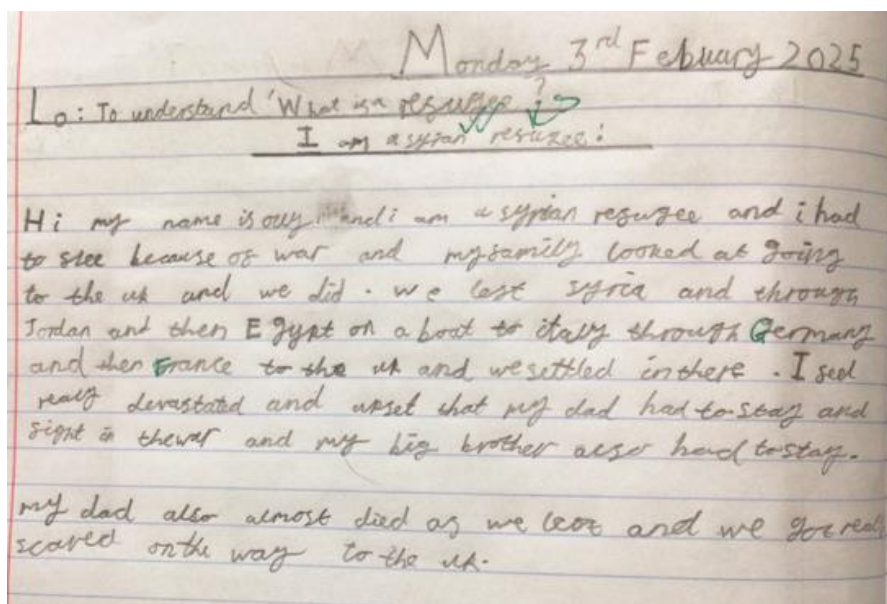 Monday 3rd Febuary 2025
Lo: To understand 'What is a refugee?
I am a syrian refugee:
Hi my name is and i am a syrian refugee and i had
to flee because of war and my family looked at going
to the uk and we did. we left syria and through
Jordan and then Egypt on a boat to italy through Germany
and then France to the uk and we settled in there. I feel
realy devastated and upset that my dad had to stay and
fight in the war and my big brother also had to stay.
my dad also almost died as we left and we got really
scared on the way to the uk.